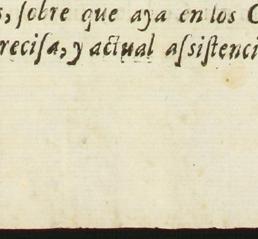 s, ſobre que aya en los C
reciſa, y actual aſsiſtenci